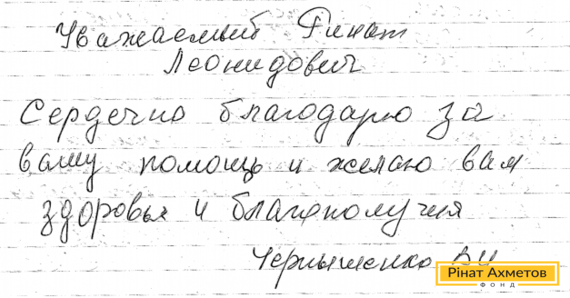 Уважаемый Ринат
Леонидович
Сердечно благодарю за
вашу помощь и желаю вам
здоровья и благополучия
Чернышенко В И
Рінат Ахметов
ФОНД